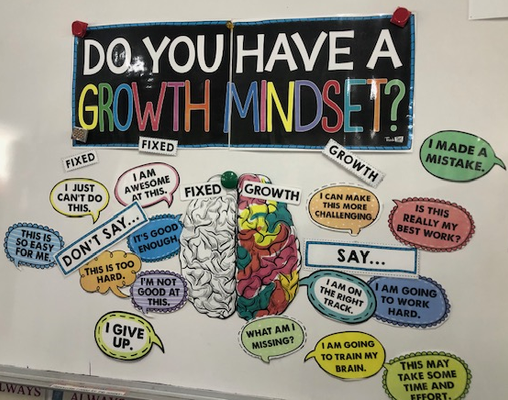 DO YOU HAVE A
GROWTH MINDSET?
FIXED
FIXED
GROWTH
FIXED
GROWTH
I JUST
CAN'T DO
THIS.
I AM
AWESOME
AT THIS.
THIS IS
SO EASY
FOR ME.
DON'T SAY...
IT'S GOOD
ENOUGH.
THIS IS TOO
HARD.
I'M NOT
GOOD AT
THIS.
I GIVE
UP.
I MADE A
MISTAKE.
I CAN MAKE
THIS MORE
CHALLENGING.
IS THIS
REALLY MY
BEST WORK?
SAY...
I AM ON
THE RIGHT
TRACK.
I AM GOING
TO WORK
HARD.
WHAT AM I
MISSING?
I AM GOING
TO TRAIN MY
BRAIN.
THIS MAY
TAKE SOME
TIME AND
EFFORT.
ALWAYS
ALWAYS